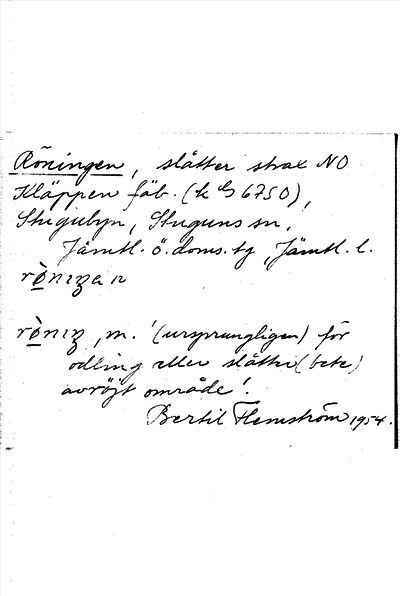 Röningen, slåtter strax NO
Kläppen fäb. (k 6750),
Stugubyn, Stuguns sn,
Jämtl. ö. doms. tg, Jämtl. l.
rö̀niŋen

rö̀niŋ, m. '(ursprungligen) för
odling eller slåtter (bete)
avröjt område'.
Bertil Flemström 1954.